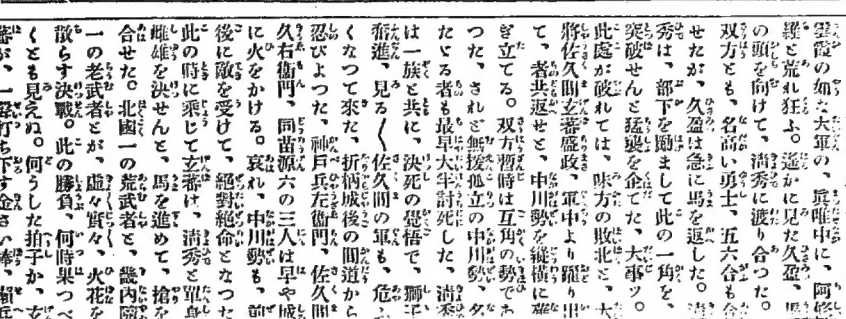 雲霞の如な大軍の、眞唯中に、阿修
羅と荒れ狂ふ。遙かに見た久盈、馬
の頭を向けて、淸秀に渡り合つた。
双方とも、名高い勇士、五六合も合
せたが、久盈は急に馬を返した。淸
秀は、部下を勵まして此の一角を、
突破せんと猛襲を企てた、大事ッ。
此處が破れては、味方の敗北と、大
將佐久間玄蕃盛政、軍中より躍り出
て、者共返せと、中川勢を縱橫に薙
ぎ立てる。双方暫時は互角の勢であ
つた、されど無援孤立の中川勢、名
たゝる者も最早大半討死した、淸秀
は一族と共に、決死の覺悟で、獅子
奮進、見る〱佐久間の軍も、危ふ
くなつて來た、折柄城後の間道から
忍びよつた、神戶兵左衞門、佐久間
久右衞門、同苗源六の三人は早や城
に火をかける。哀れ、中川勢も、前
後に敵を受けて、絕對絕命となつた
此の時に乘じて玄蕃は、淸秀と單身
雌雄を決せんと、馬を進めて、槍を
合せた。北國一の荒武者と、畿內隨
一の老武者とが、虛々實々、火花を
散らす決戰。此の勝負、何時果つべ
くとも見えぬ。何うした拍子か、玄
蕃が、一聲打ち下す金さい棒、